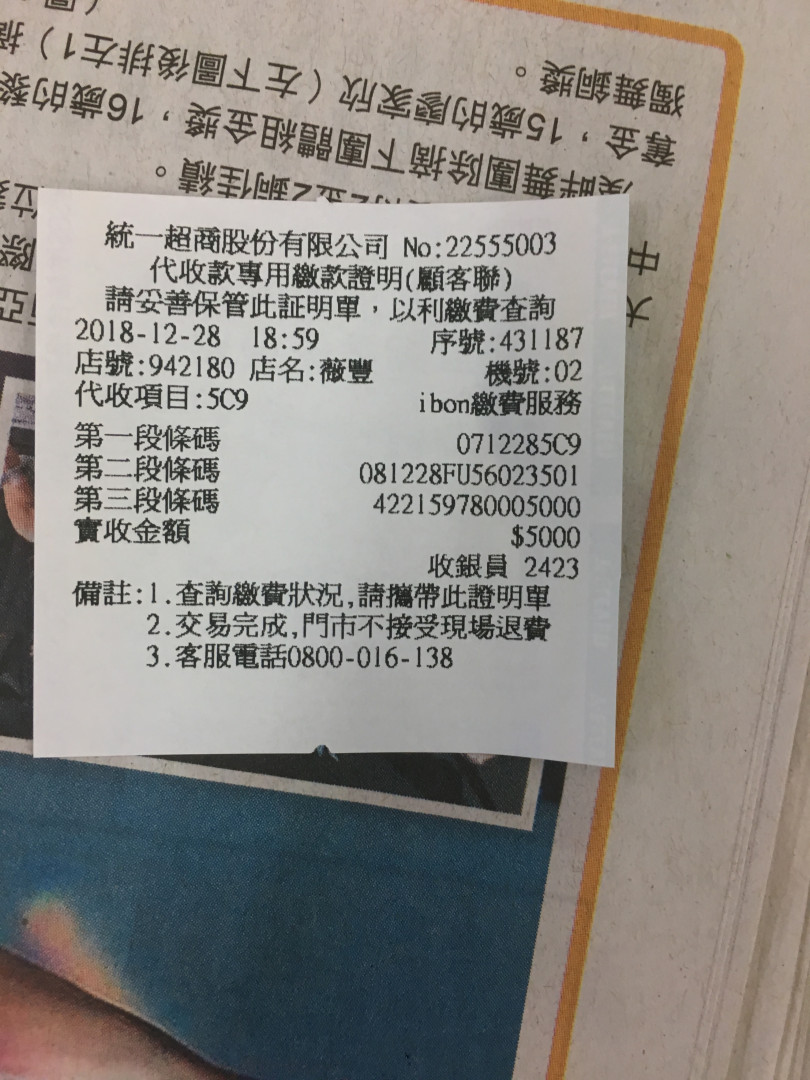 獨舞銅獎。
奪金，15歲的廖家欣（左下圖後排左1）
溪畔舞團除摘下團體組金獎，16歲的
統一超商股份有限公司 No:22555003
代收款專用繳款證明(顧客聯)
請妥善保管此証明單，以利繳費查詢
2018-12-28 18:59 序號:431187
店號:942180 店名:薇豐 機號:02
代收項目:5C9 ibon繳費服務
第一段條碼 0712285C9
第二段條碼 081228FU56023501
第三段條碼 422159780005000
實收金額 $5000
收銀員 2423
備註:1.查詢繳費狀況,請攜帶此證明單
2.交易完成,門市不接受現場退費
3.客服電話0800-016-138